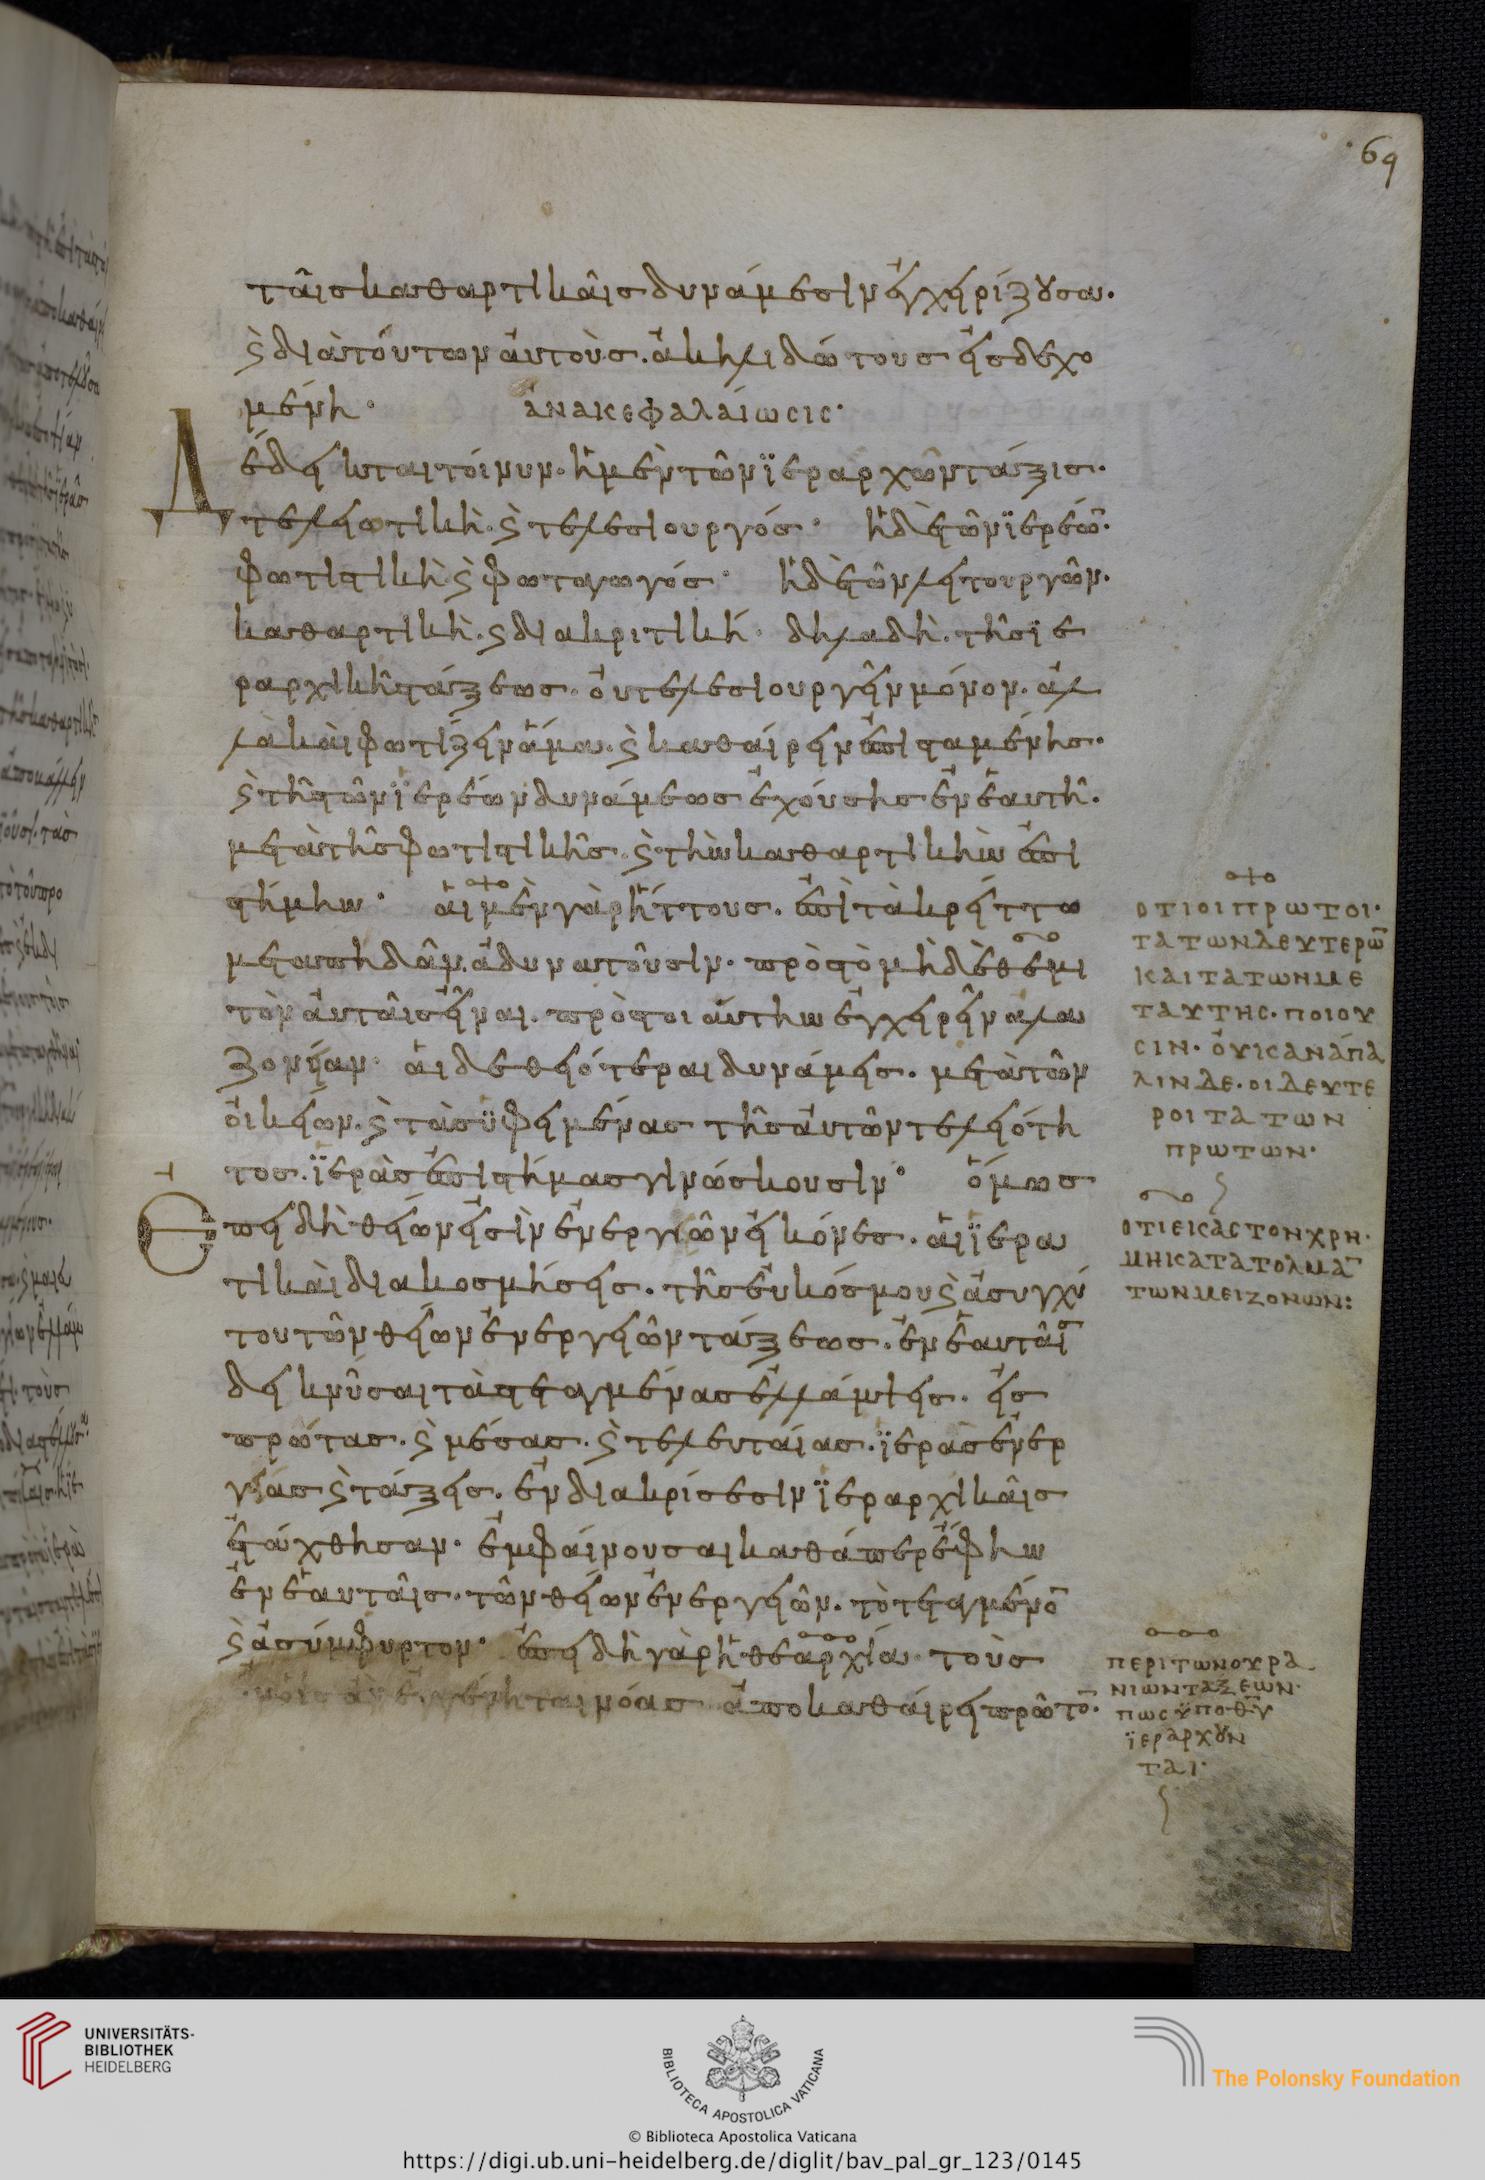 69
ταῖς καθαρτικαῖς δυνάμεσιν ἐγχειρίζουσα.
καὶ διὰ τούτων αὐτοὺς. ἀκηλιδώτους εἰσδεχο
μένη· ἀνακεφαλαίωσις·
Δέδεικται τοίνυν. ἡ μὲν τῶν ϊεραρχῶν τάξις.
τελειωτικὴ. καὶ τελεσιουργός· ἡ δὲ τῶν ϊερεων·
φωτιστικὴ καὶ φωταγωγός· ἡ δὲ τῶν λειτουργῶν.
καθαρτικὴ. καὶ διακριτική· δηλαδὴ. τῆς ϊε
ραρχικῆς τάξεως. οὐ τελεσιουργεῖν μόνον. ἀλ
λὰ καὶ φωτίζειν ἅμα. καὶ καθαίρειν ἐπισταμένης.
καὶ τῆς τῶν ϊερέων δυνάμεως ἐχούσης ἐν ἑαυτῇ.
μετὰ τῆς φωτιστικῆς. καὶ τὴν καθαρτικὴν ἐπι
στήμην· αἱ μὲν γὰρ ἥττους. ἐπὶ τὰ κρείττω
μεταπηδᾶν. ἀδυνατοῦσιν. πρὸς τὸ μηδὲ θεμι
τὸν αὐταῖς εἶναι. πρὸς τοιαύτην ἐγχειρεῖν ἀλα
ζονείαν· αἱ δὲ θειότεραι δυνάμεις. μετὰ τῶν
οἰκείων. καὶ τὰς ϋφειμένας τῆς αὐτῶν τελειότη
τος. ϊερὰς ἐπιστήμας γινώσκουσιν· ὅμως
Επειδὴ θείων εἰσὶν ἐνεργιῶν εἰκόνες. αἱ ϊερα
τικαὶ διακοσμήσεις. τῆς εὐκόσμου καὶ ἀσυγχύ
του τῶν θείων ἐνεργειῶν τάξεως. ἐν ἑαυταῖς
δεικνῦσαι τὰς τεταγμένας ἐλλάμψεις. εἰς
πρώτας. καὶ μέσας. καὶ τελευταίας. ϊερὰς ἐνερ
γείας καὶ τάξεις. ἐν διακρίσεσιν ϊεραρχικαῖς
ἐτάχθησαν· ἐμφαίνουσαι καθάπερ ἔφην
ἐν ἑαυταῖς. τῶν θείων ἐνεργειῶν. τὸ τεταγμένον
καὶ ἀσύμφυρτον· ἐπειδὴ γὰρ ἡ θεαρχία. τοὺς
ἐγγένηται νόας ἀποκαθαίρει πρῶτον.
ΟΤΙ ΟΙ ΠΡΩΤΟΙ·
ΤΑ ΤΩΝ ΔΕΥΤΕΡΩΝ
ΚΑΙ ΤΑ ΤΩΝ ΜΕ
ΤΑΥΤΗΣ· ΠΟΙΟΥ
ΣΙΝ· ΟΥΚ ΑΝΑΠΑ
ΛΙΝ ΔΕ· ΟΙ ΔΕΥΤΕ
ΡΟΙ ΤΑ ΤΩΝ
ΠΡΩΤΩΝ·
ΟΤΙ ΕΚΑΣΤΟΝ ΧΡΗ·
ΜΗ ΚΑΤΑΤΟΛΜΑΝ
ΤΩΝ ΜΕΙΖΟΝΩΝ:
ΠΕΡΙ ΤΩΝ ΟΥΡΑ
ΝΙΩΝ ΤΑΞΕΩΝ·
ΠΩΣ ΫΠΟ ΘΥ
ΪΕΡΑΡΧΟΥΝ
ΤΑΙ·
UNIVERSITÄTS-
BIBLIOTHEK
HEIDELBERG
BIBLIOTECA APOSTOLICA VATICANA
The Polonsky Foundation
© Biblioteca Apostolica Vaticana
https://digi.ub.uni-heidelberg.de/diglit/bav_pal_gr_123/0145